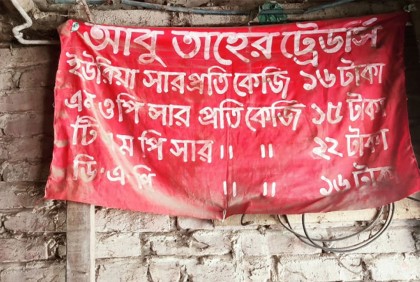 আবু তাহের ট্রেডার্স
ইউরিয়া সার প্রতি কেজি ১৬ টাকা
এম ও পি সার প্রতি কেজি ১৫ টাকা
টি এস পি সার ৷৷ ৷৷ ২২ টাকা
ডি এ পি ৷৷ ৷৷ ১৬ টাকা